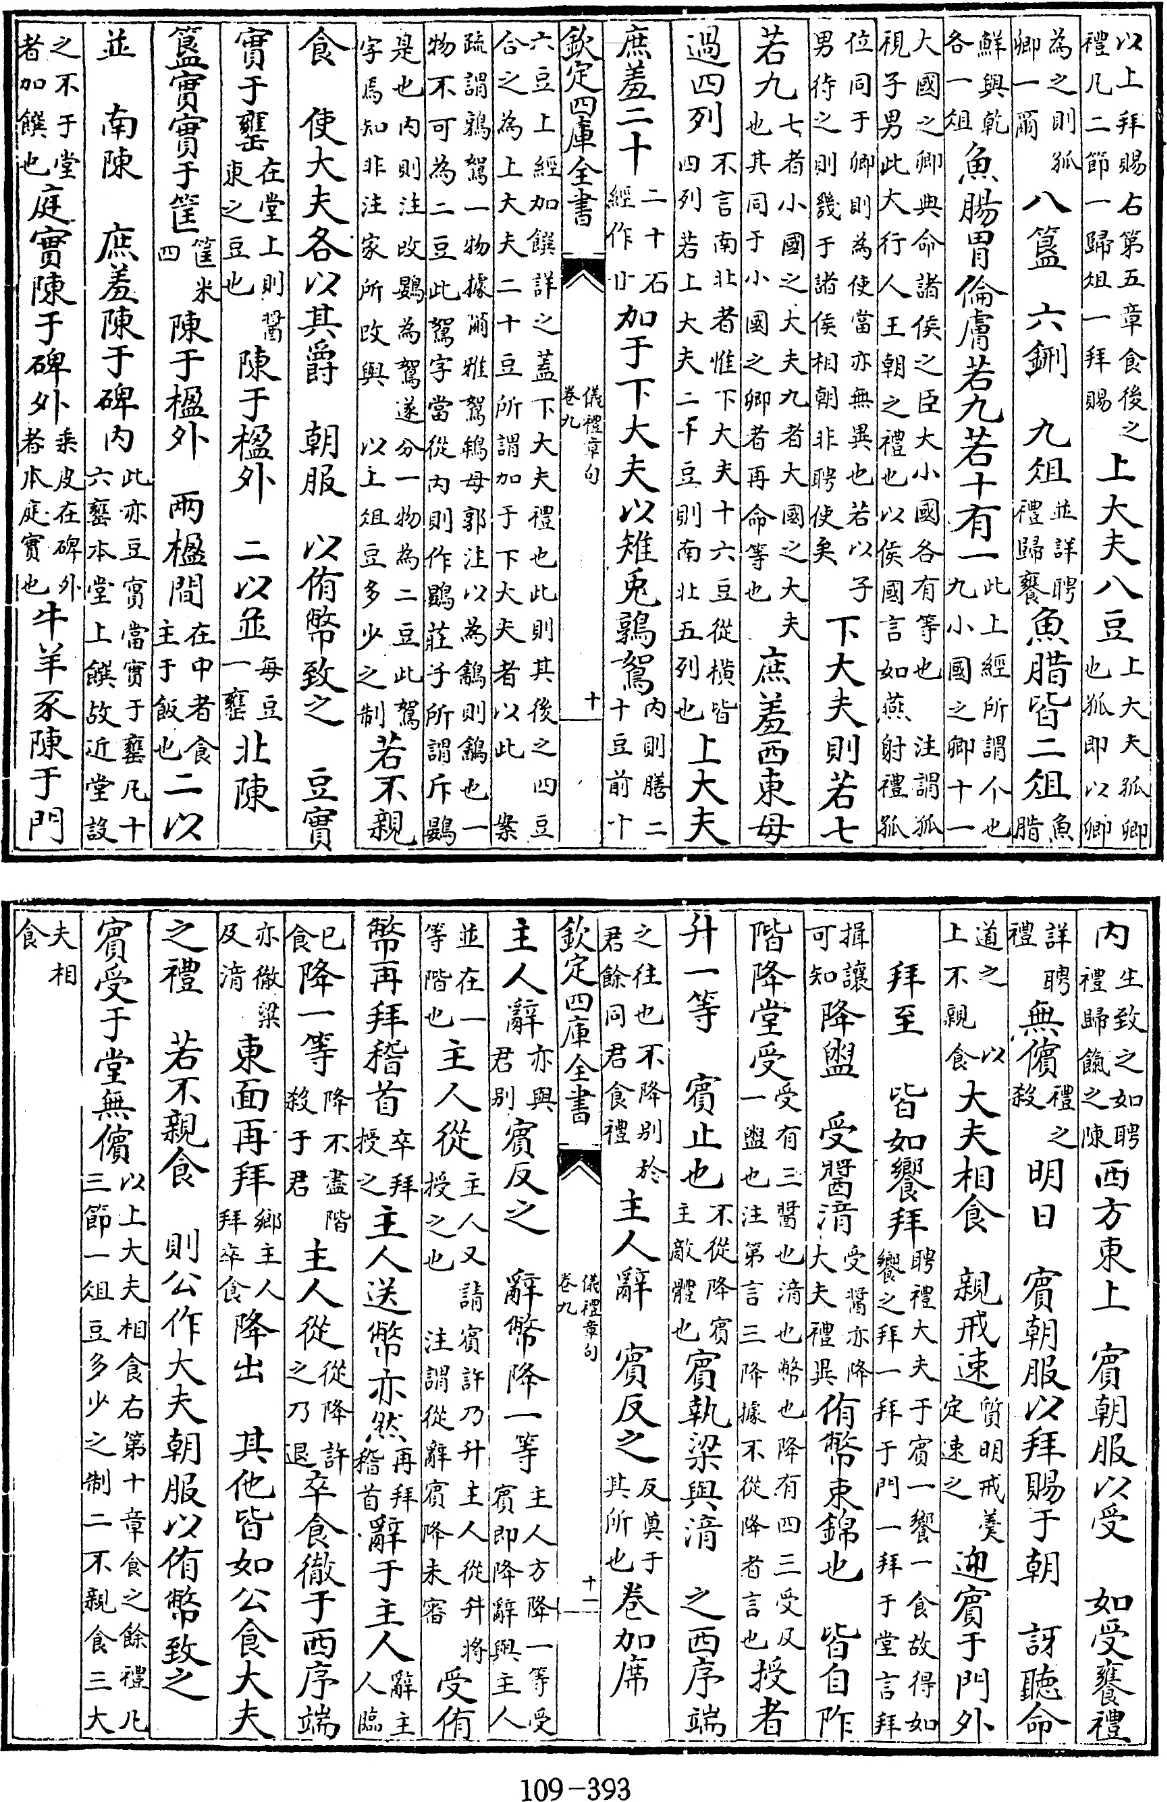 以上拜賜右第五章食後之禮凡二節一歸俎一拜賜上大夫八豆上大夫孤卿也孤即以卿
為之則孤卿一爾八簋 六鉶 九俎並詳聘禮歸饔魚腊皆二俎魚腊
鮮與乾各一俎魚腸胃倫膚若九若十有一此上經所謂个也九小國之卿十一
大國之卿典命諸侯之臣大小國各有等也注謂孤視子男此大行人王朝之禮也以侯國言如燕射禮孤
位同于卿則為使當亦無異也若以子男待之則幾于諸侯相朝非聘使矣下大夫則若七
若九七者小國之大夫九者大國之大夫也其同于小國之卿者再命等也庶羞西東毋
過四列不言南北者惟下大夫十六豆從橫皆四列若上大夫二十豆則南北五列也上大夫
庶羞二十二十石經作廿加于下大夫以雉兔鶉鴽內則膳二十豆前十
欽定四庫全書 儀禮章句 卷九 十
六豆上經加饌詳之蓋下大夫禮也此則其後之四豆合之為上大夫二十豆所謂加于下大夫者以此 案
疏謂鶉鴽一物據爾雅鴽鴾母郭注以為鷯則鷯也一物不可為二豆此鴽字當從內則作鷃莊子所謂斥鷃
是也內則注改鷃為鴽遂分一物為二豆此鴽字焉知非注家所改與 以上俎豆多少之制若不親
食 使大夫各以其爵 朝服 以侑幣致之 豆實
實于罋在堂上則醬東之豆也陳于楹外 二以並每豆一罋北陳
簋實實于筐筐米四陳于楹外 兩楹間在中者食主于飯也二以
並 南陳 庶羞陳于碑內此亦豆實當實于罋凡十六罋本堂上饌故近堂設
之不于堂者加饌也庭實陳于碑外乘皮在碑外者本庭實也牛羊豕陳于門
內生致之如聘禮歸餼之陳西方東上 賓朝服以受 如受饔禮
詳聘禮無儐禮之殺明日 賓朝服以拜賜于朝 訝聽命
道之 以上不親食大夫相食 親戒速質明戒羹定速之迎賓于門外
拜至 皆如饗拜聘禮大夫于賓一饗一食故得如饗之拜一拜于門一拜于堂言拜
揖讓可知降盥 受醬湆受醬亦降大夫禮異侑幣束錦也 皆自阼
階降堂受受有三醬也湆也幣也降有四三受及一盥也注第言三降據不從降者言也授者
升一等 賓止也不從降賓主敵體也賓執粱與湆 之西序端
之往也不降别於君餘同君食禮主人辭 賓反之反奠于其所也卷加席
欽定四庫全書 儀禮章句 卷九 十一
主人辭亦與君别賓反之 辭幣降一等主人方降一等受賓即降辭與主人
並在一等階也主人從主人又請賓許乃升主人從升將授之也 注謂從辭賓降未審受侑
幣再拜稽首卒拜授之主人送幣亦然再拜稽首辭于主人辭主人臨
已食降一等降不盡階殺于君主人從從降許之乃退卒食徹于西序端
亦徹粱及湆東面再拜鄉主人拜卒食降出 其他皆如公食大夫
之禮 若不親食 則公作大夫朝服以侑幣致之
賓受于堂無儐以上大夫相食右第十章食之餘禮凡三節一俎豆多少之制二不親食三大
夫相食
109-393